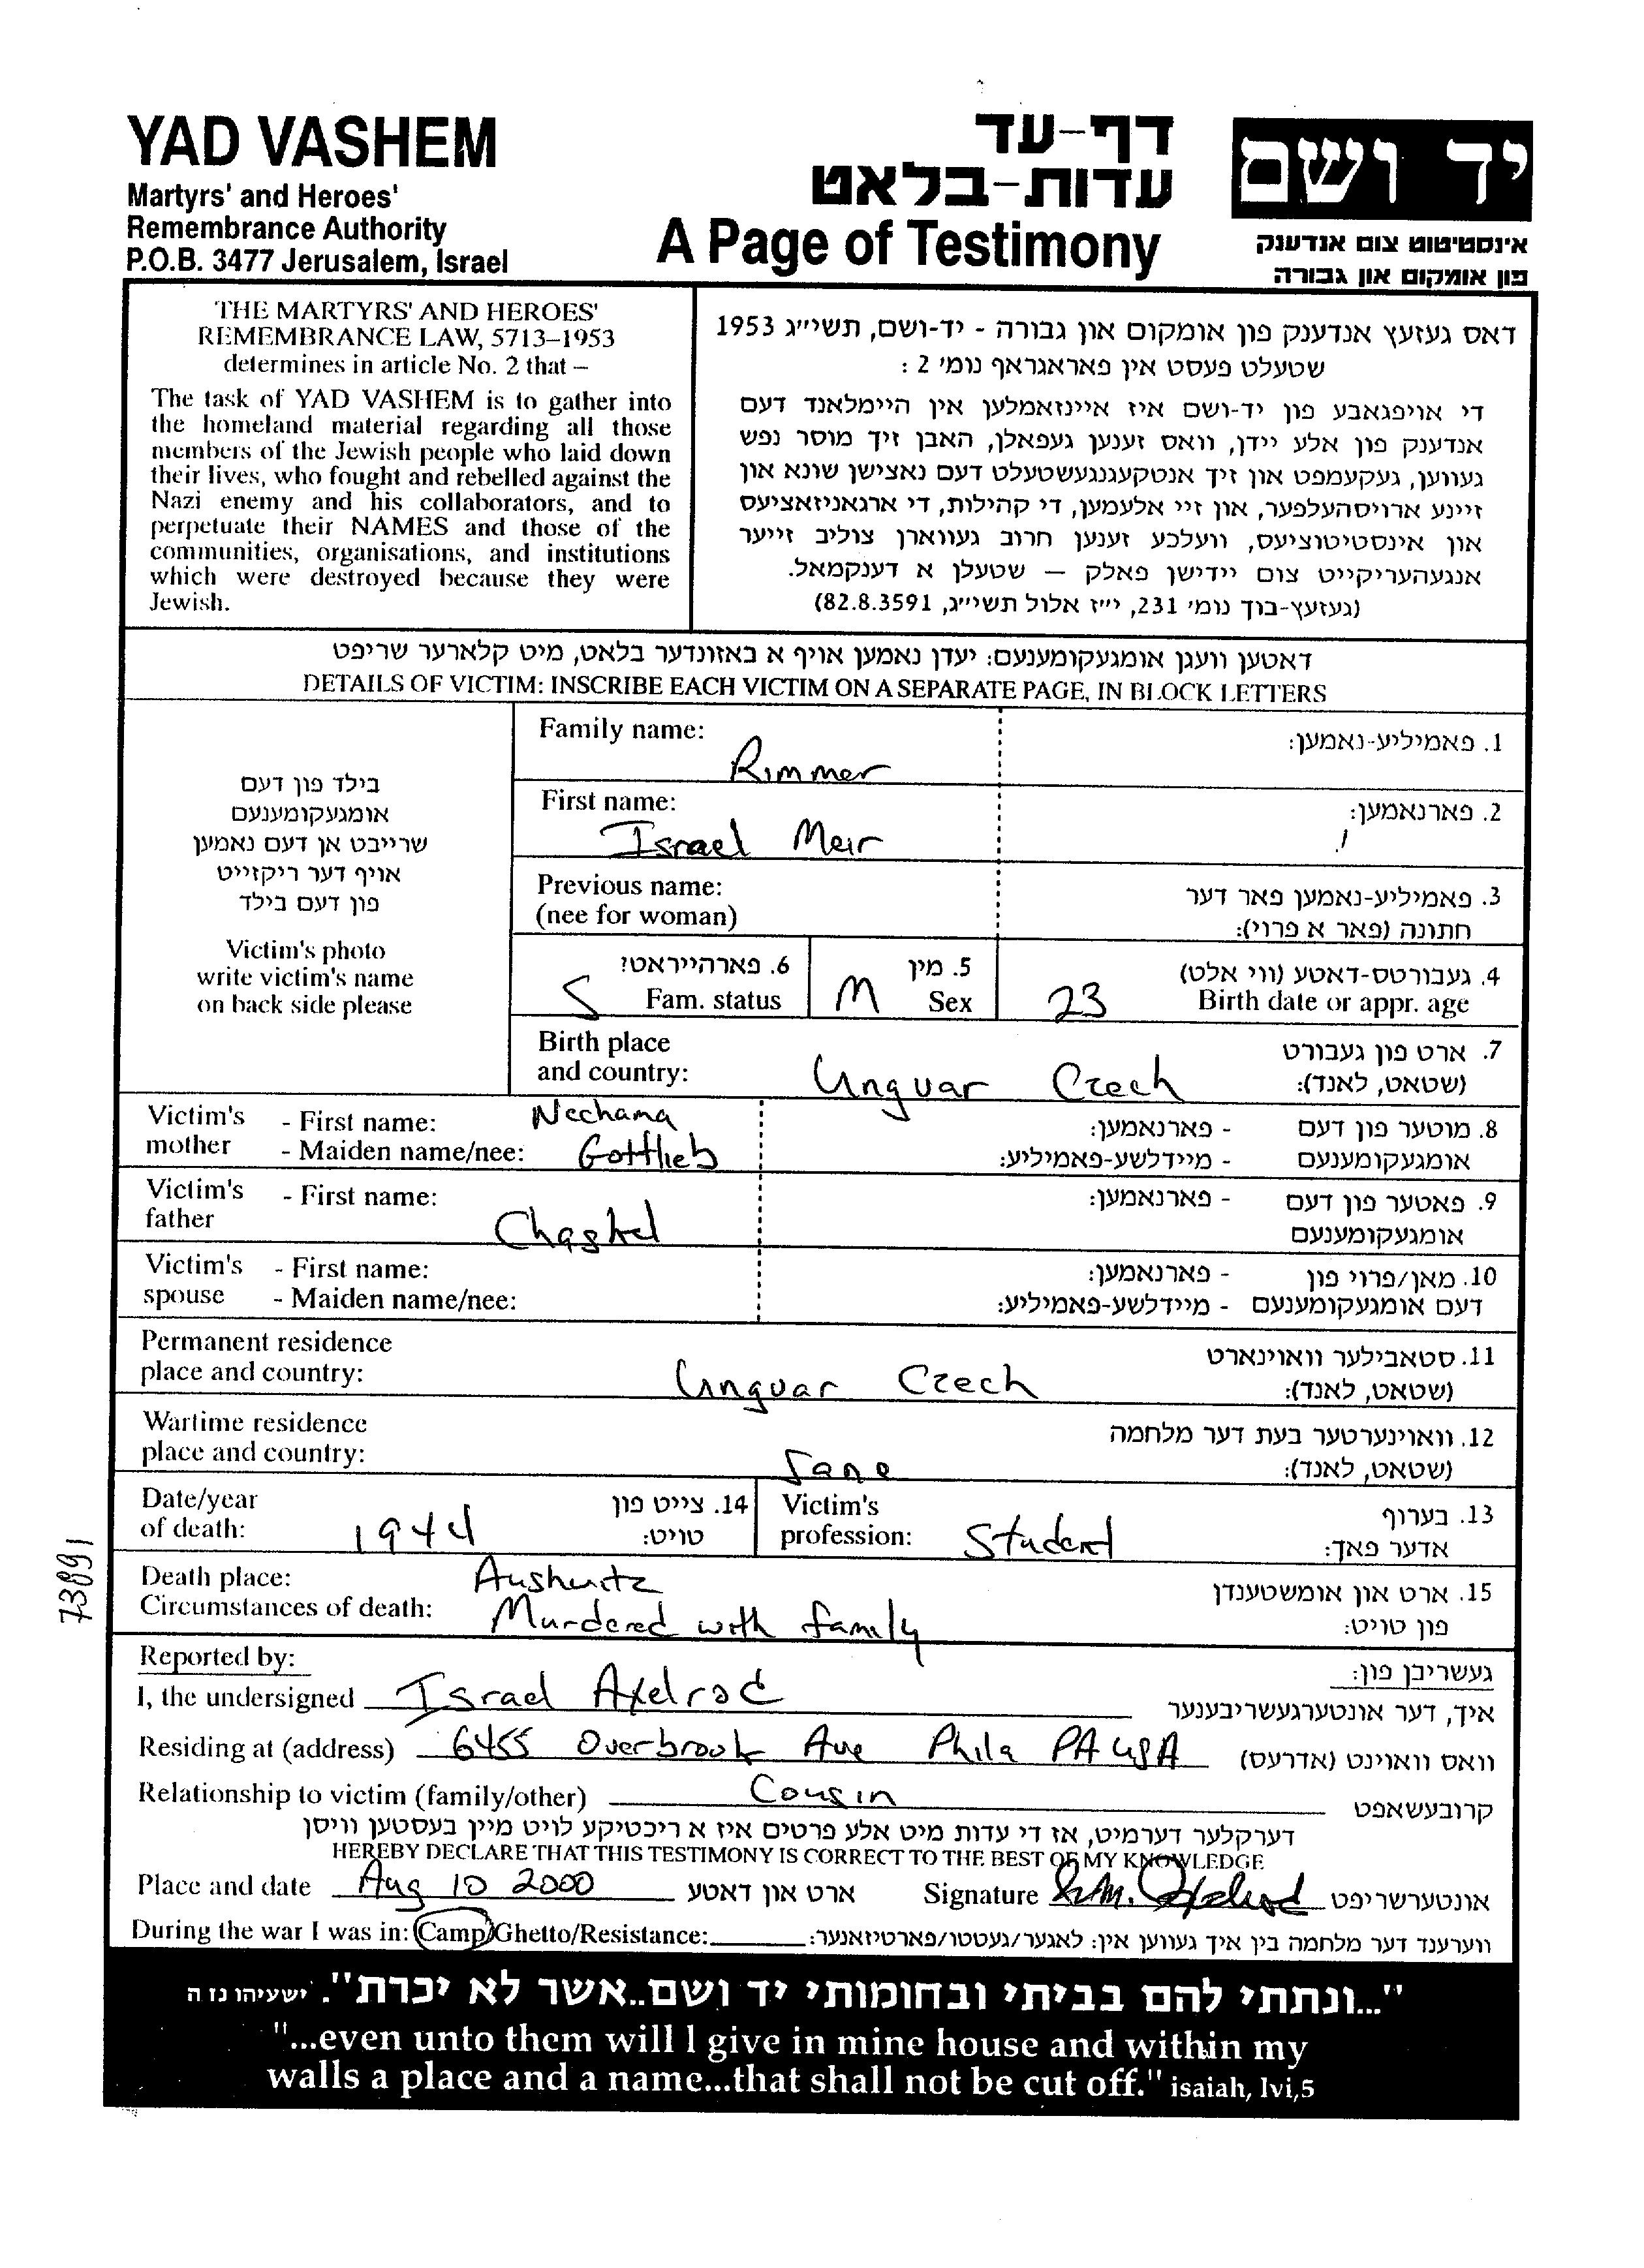 YAD VASHEM
Martyrs' and Heroes'
Remembrance Authority
P.O.B. 3477 Jerusalem, Israel
דף-עד
עדות-בלאט
A Page of Testimony
יד ושם
אינסטיטוט צום אנדענק
פון אומקום און גבורה
THE MARTYRS' AND HEROES'
REMEMBRANCE LAW, 5713–1953
determines in article No. 2 that –
The task of YAD VASHEM is to gather into
the homeland material regarding all those
members of the Jewish people who laid down
their lives, who fought and rebelled against the
Nazi enemy and his collaborators, and to
perpetuate their NAMES and those of the
communities, organisations, and institutions
which were destroyed because they were
Jewish.
דאס געזעץ אנדענק פון אומקום און גבורה - יד-ושם, תשי״ג 1953
שטעלט פעסט אין פאראגראף נומ׳ 2 :
די אויפגאבע פון יד-ושם איז איינזאמלען אין היימלאנד דעם
אנדענק פון אלע יידן, וואס זענען געפאלן, האבן זיך מוסר נפש
געווען, געקעמפט און זיך אנטקעגנגעשטעלט דעם נאצישן שונא און
זיינע ארויסהעלפער, און זיי אלעמען, די קהילות, די ארגאניזאציעס
און אינסטיטוציעס, וועלכע זענען חרוב געווארן צוליב זייער
אנגעהעריקייט צום יידישן פאלק — שטעלן א דענקמאל.
(געזעץ-בוך נומ׳ 231, י״ז אלול תשי״ג, 82.8.3591)
דאטען וועגן אומגעקומענעם: יעדן נאמען אויף א באזונדער בלאט, מיט קלארער שריפט
DETAILS OF VICTIM: INSCRIBE EACH VICTIM ON A SEPARATE PAGE, IN BLOCK LETTERS
בילד פון דעם
אומגעקומענעם
שרייבט אן דעם נאמען
אויף דער ריקזייט
פון דעם בילד
Victim's photo
write victim's name
on back side please
Family name: 1. פאמיליע-נאמען:
Rimmer
First name: 2. פארנאמען:
Israel Meir
Previous name: 3. פאמיליע-נאמען פאר דער
(nee for woman) חתונה (פאר א פרוי):
6. פארהייראט? 5. מין 4. געבורטס-דאטע (ווי אלט)
S Fam. status M Sex 23 Birth date or appr. age
Birth place 7. ארט פון געבורט
and country: Unguar Czech (שטאט, לאנד):
Victim's - First name: Nechama - פארנאמען: 8. מוטער פון דעם
mother - Maiden name/nee: Gottlieb - מיידלשע-פאמיליע: אומגעקומענעם
Victim's - First name: - פארנאמען: 9. פאטער פון דעם
father Chaskel אומגעקומענעם
Victim's - First name: - פארנאמען: 10. מאן/פרוי פון
spouse - Maiden name/nee: - מיידלשע-פאמיליע: דעם אומגעקומענעם
Permanent residence 11. סטאבילער וואוינארט
place and country: Unguar Czech (שטאט, לאנד):
Wartime residence 12. וואוינערטער בעת דער מלחמה
place and country: Same (שטאט, לאנד):
Date/year 14. צייט פון Victim's 13. בערוף
of death: 1944 טויט: profession: Student אדער פאך:
Death place: Aushwitz 15. ארט און אומשטענדן
Circumstances of death: Murdered with family פון טויט:
73891
Reported by: געשריבן פון:
I, the undersigned Israel Axelrod איך, דער אונטערגעשריבענער
Residing at (address) 6455 Overbrook Ave Phila PA USA וואס וואוינט (אדרעס)
Relationship to victim (family/other) Cousin קרובעשאפט
דערקלער דערמיט, אז די עדות מיט אלע פרטים איז א ריכטיקע לויט מיין בעסטען וויסן
HEREBY DECLARE THAT THIS TESTIMONY IS CORRECT TO THE BEST OF MY KNOWLEDGE
Place and date Aug 10 2000 ארט און דאטע Signature Axelrod אונטערשריפט
During the war I was in: Camp/Ghetto/Resistance: ווערענד דער מלחמה בין איך געווען אין: לאגער/געטטו/פארטיזאנער:
"...ונתתי להם בביתי ובחומותי יד ושם..אשר לא יכרת". ישעיהו נז ה
"...even unto them will I give in mine house and within my
walls a place and a name...that shall not be cut off." isaiah, lvi,5